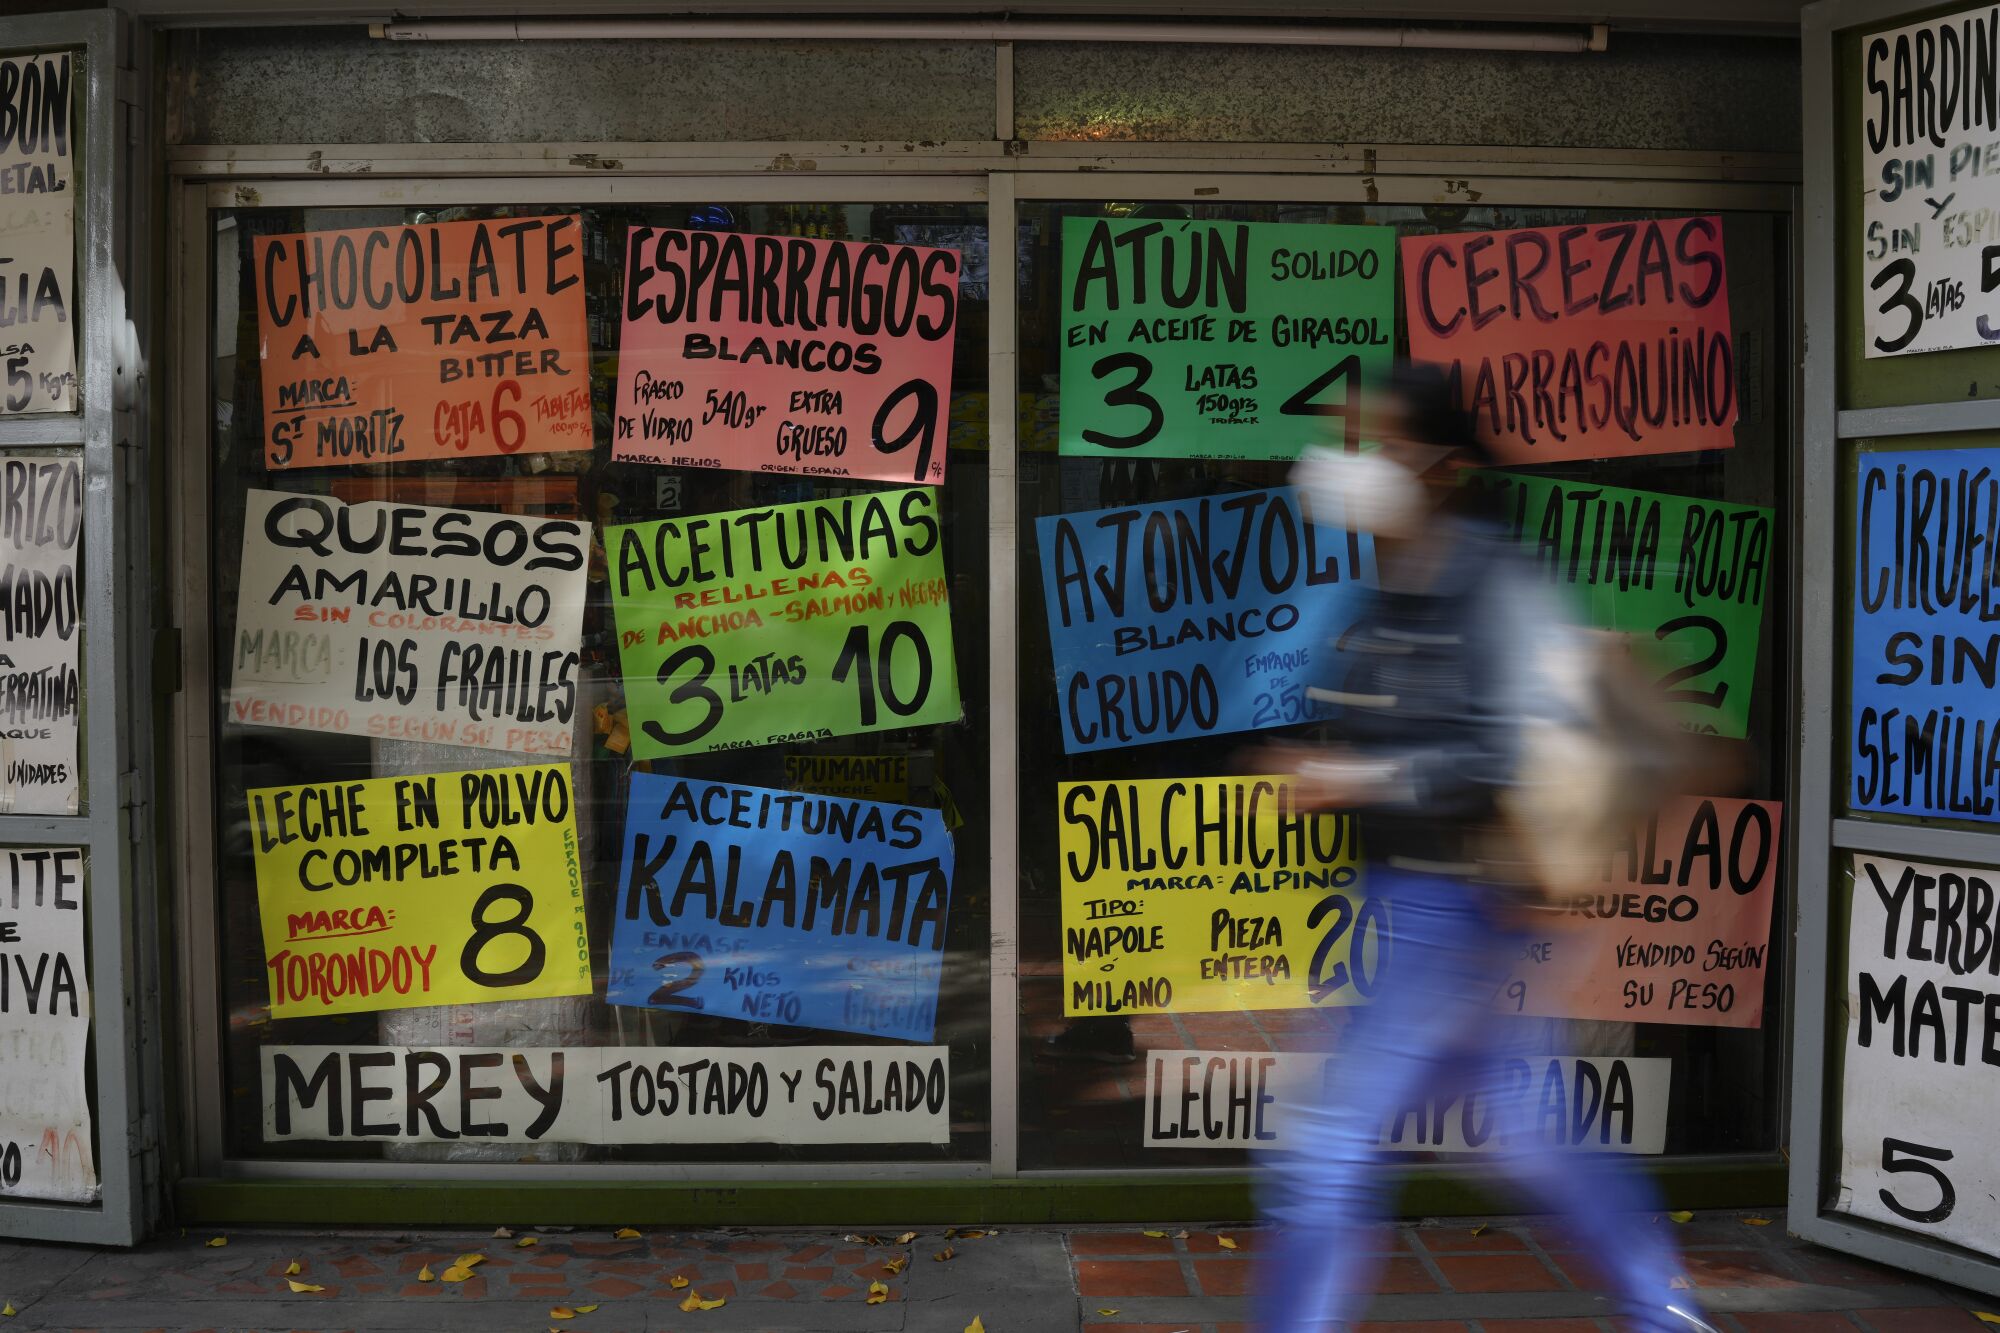 CHOCOLATE
A LA TAZA
BITTER
MARCA:
ST MORITZ
CAJA 6 TABLETAS
100grs c/T
ESPARRAGOS
BLANCOS
FRASCO
DE VIDRIO
540gr
EXTRA
GRUESO
9
MARCA: HELIOS
ORIGEN: ESPAÑA
ATÚN SOLIDO
EN ACEITE DE GIRASOL
3 LATAS
150grs
TRIPACK
4
CEREZAS
ARRASQUINO
QUESOS
AMARILLO
SIN COLORANTES
MARCA: LOS FRAILES
VENDIDO SEGÚN SU PESO
ACEITUNAS
RELLENAS
DE ANCHOA - SALMÓN Y NEGRA
3 LATAS 10
MARCA: FRAGATA
AJONJOLI
BLANCO
CRUDO
EMPAQUE
DE
LATINA ROJA
2
LECHE EN POLVO
COMPLETA
MARCA:
TORONDOY
8
EMPAQUE DE 900
SPUMANTE
ACEITUNAS
KALAMATA
ENVASE
DE 2 Kilos
NETO
ORIGEN
GRECIA
SALCHICHO
MARCA: ALPINO
TIPO:
NAPOLE
ó
MILANO
PIEZA
ENTERA
20
ALAO
RUEGO
VENDIDO SEGÚN
SU PESO
MEREY TOSTADO Y SALADO
LECHE APORADA
BÓN
ETAL
LIA
5 Kgrs
RIZO
MADO
ERRATINA
UNIDADES
ITE
E
IVA
SARDIN
SIN PIE
Y
SIN ESPI
3 LATAS 5
CIRUEL
SIN
SEMILL
YERB
MATE
5